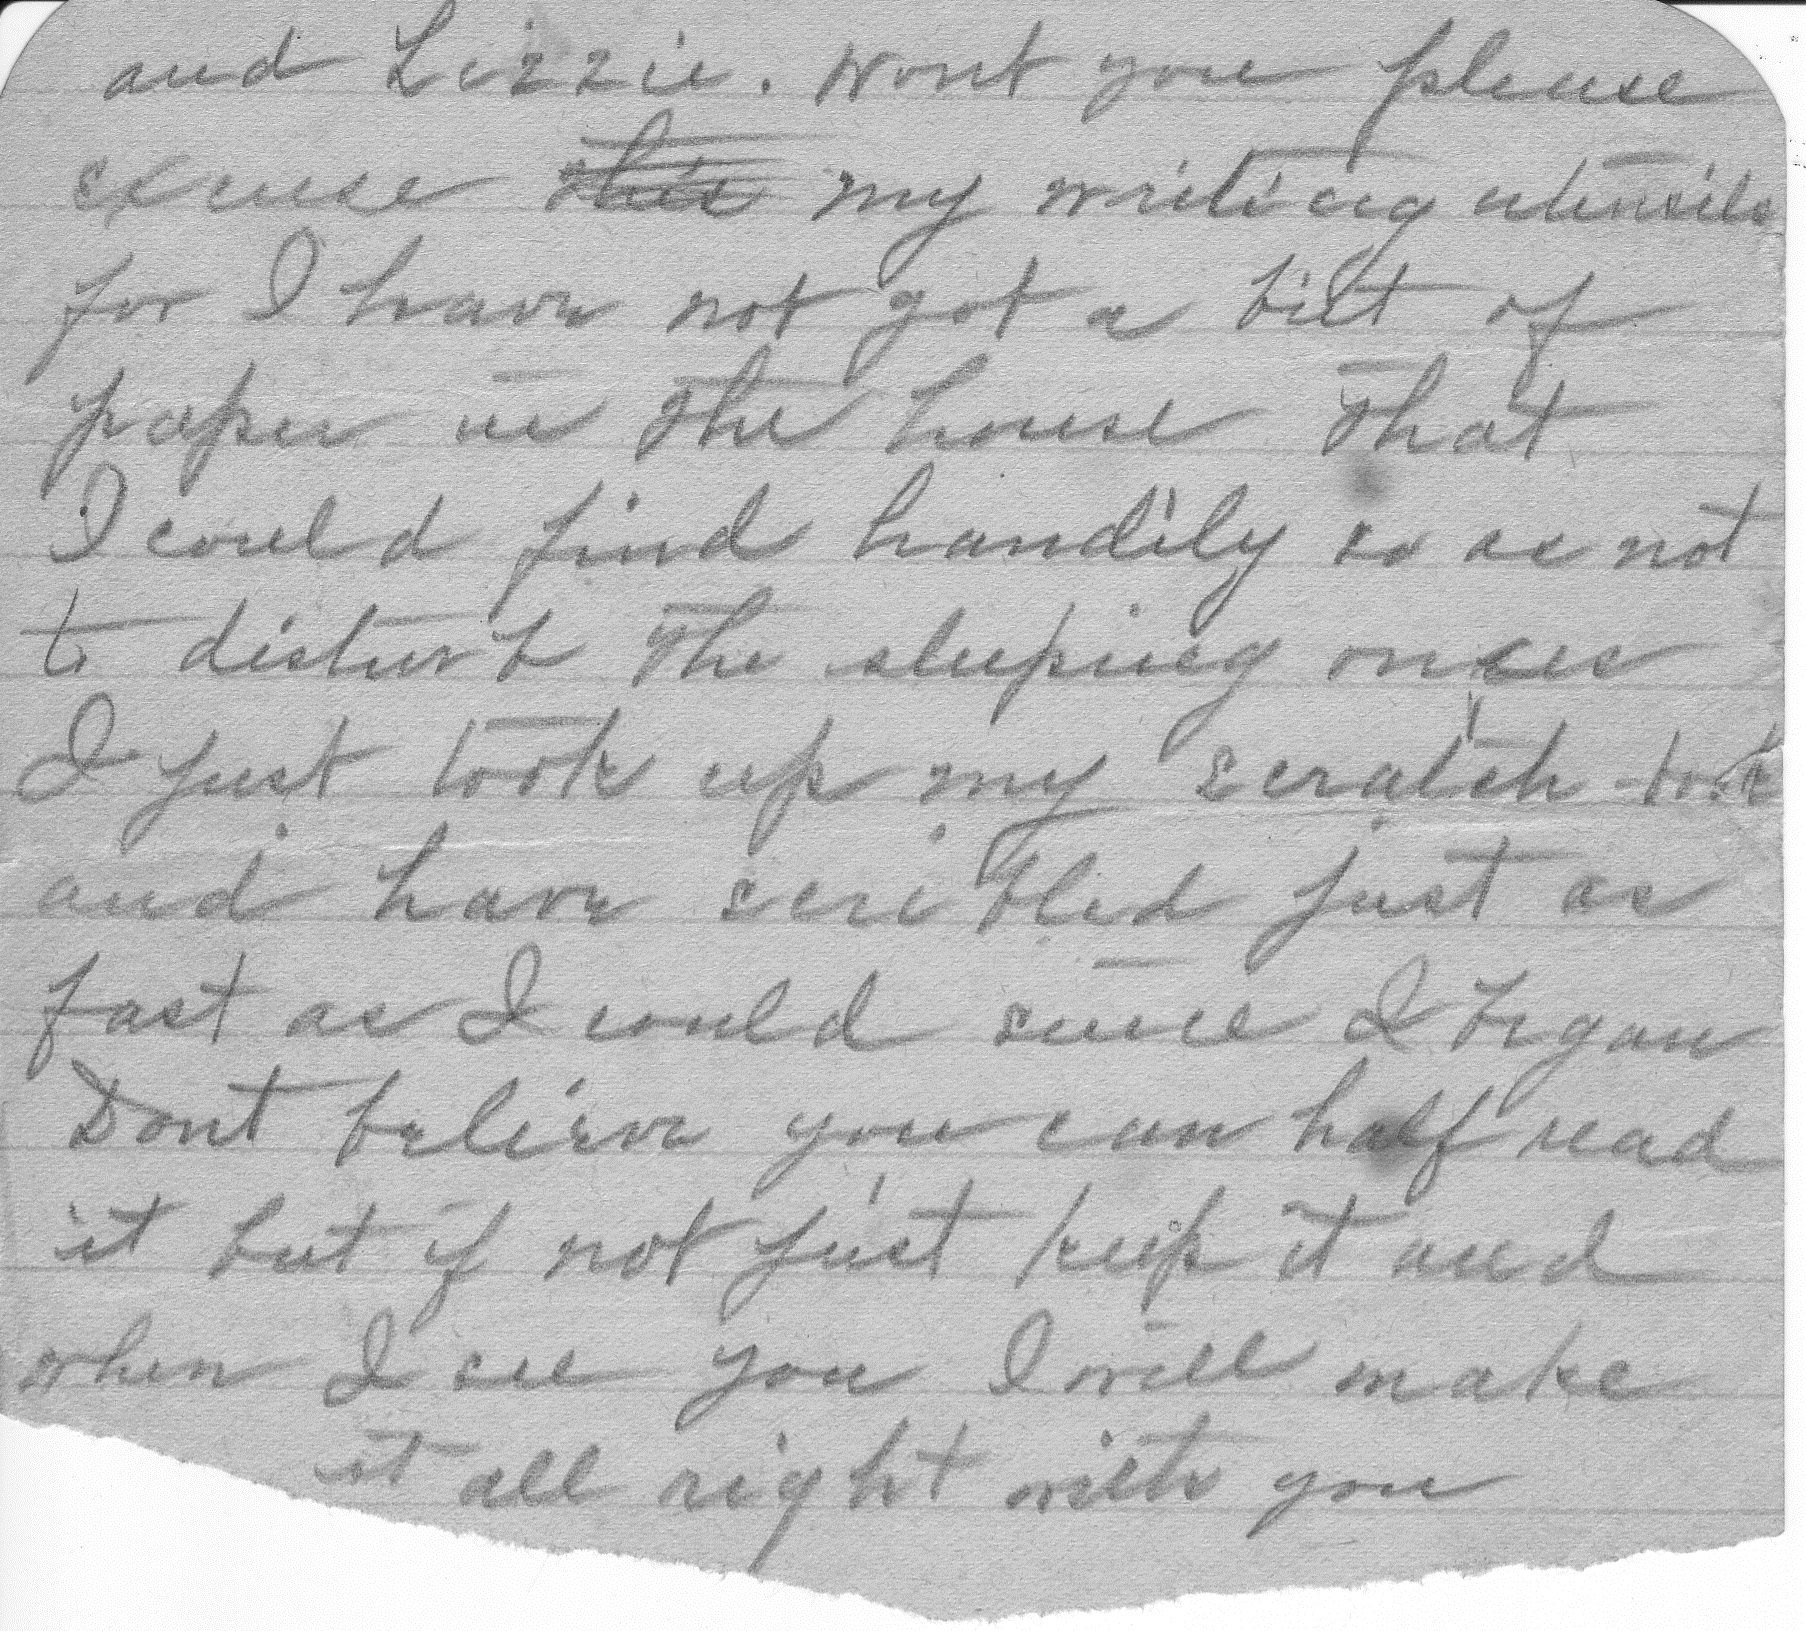 and Lizzie. Wont you please
excuse this my writing utensils
for I have not got a bit of
paper in the house that
I could find handily so as not
to disturb the sleeping ones
I just took up my scratch book
and have scribbled just as
fast as I could since I began
Dont believe you can half read
it but if not just keep it and
when I see you I will make
it all right with you